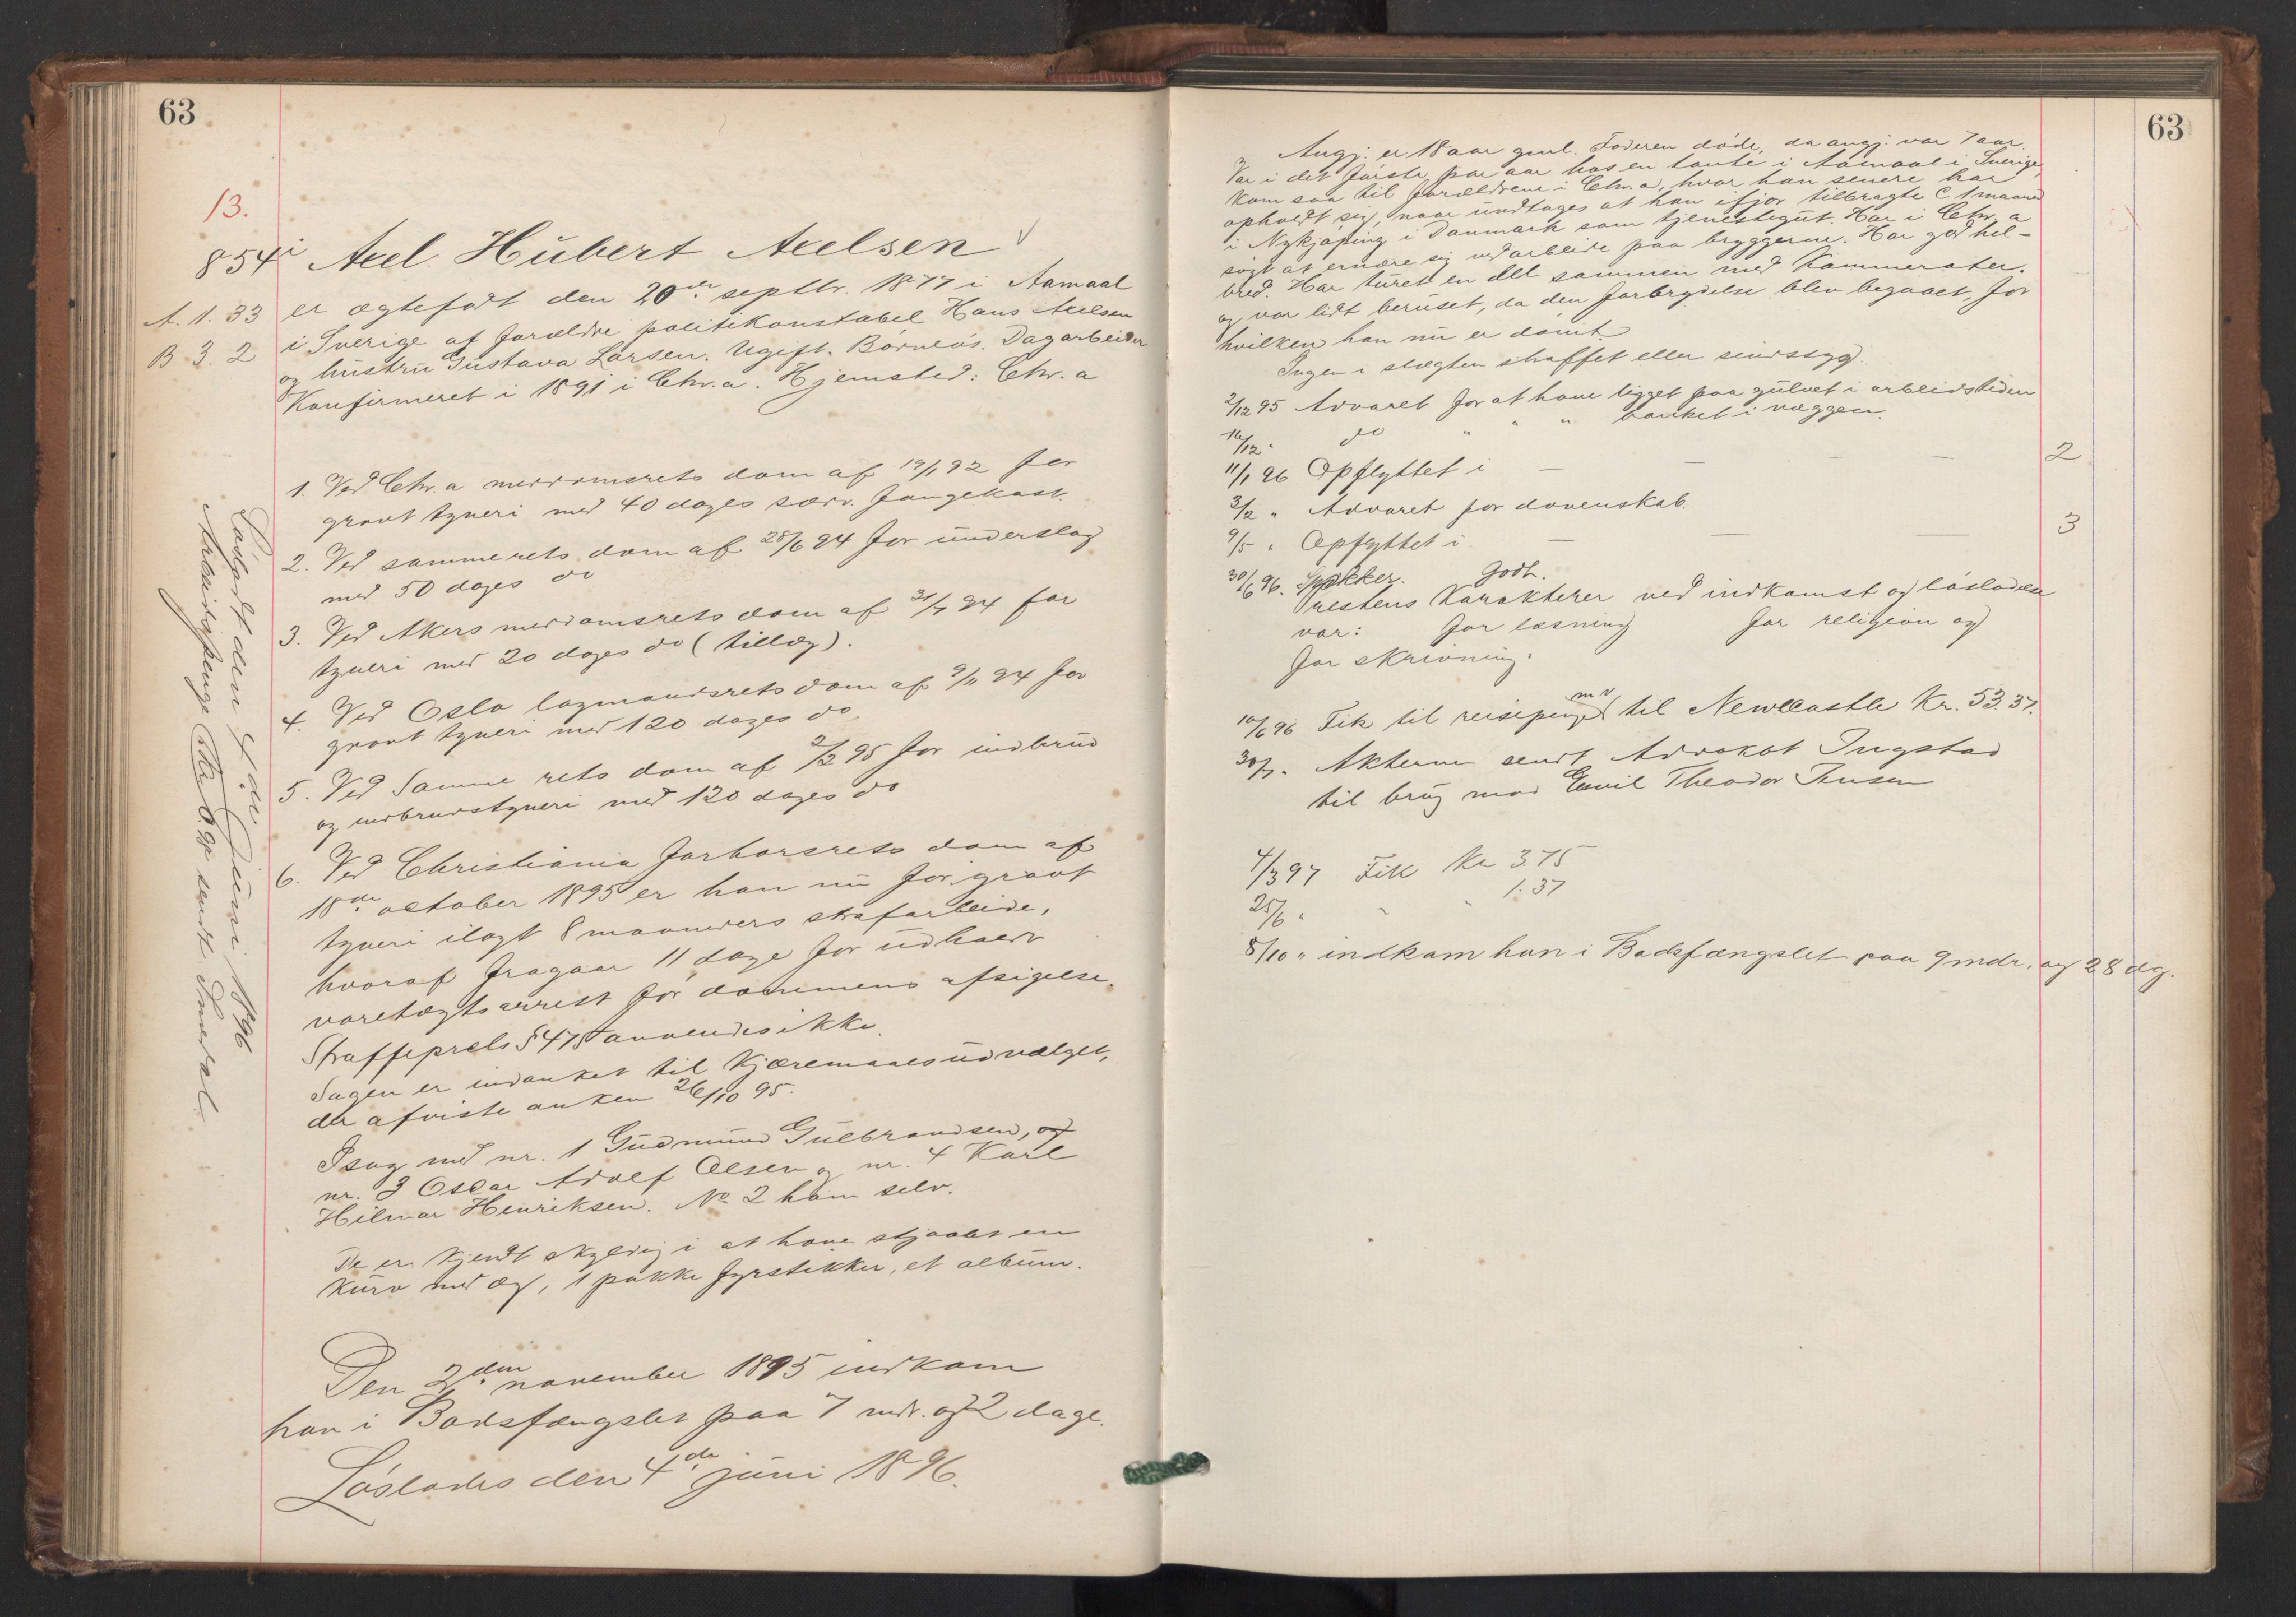 63
13.
854 i Axel Hubert Axelsen
A. 1. 33 er ægtefødt den 20de septbr. 1877 i Aamaal
i Sverige af forældre politikonstabel Hans Axelsen
B 3. 2 og hustru Gustava Larsen. Ugift. Barnløs. Dagarbeider
Konfirmeret i 1891 i Chr.a. Hjemsted: Chr.a
1. Ved Chr.a meddomsrets dom af 19/1 92 for
grovt tyveri med 40 dages sædv. fangekost.
2. Ved samme rets dom af 28/6 94 for underslag
med 50 dages do
3. Ved Akers meddomsrets dom af 31/7 94 for
tyveri med 20 dages do (tillæg).
4. Ved Oslo lagmandsrets dom af 9/11 94 for
grovt tyveri med 120 dages do.
5. Ved Samme rets dom af 2/2 95 for indbrud
og indbrudstyveri med 120 dages do
6. Ved Christiania forhørsrets dom af
18de october 1895 er han nu for grovt
tyveri ilagt 8 maaneders strafarbeide,
hvoraf fragaar 11 dage for udholdt
varetægtsarrest før dommens afsigelse.
Straffeprcls § 475 anvendes ikke.
Sagen er indanket til Kjæremaalsudvalget,
der afviste anken 26/10 95.
I sag med nr. 1 Gudmund Gulbrandsen, og
nr. 3 Oscar Adolf Olsen og nr. 4 Karl
Hilmar Henriksen. No 2 ham selv.
De er kjendt skyldig i at have stjaalet en
Kurv med æg, 1 pakke fyrstikker, et album.
Den 2den november 1895 indkom
han i Bodsfængslet paa 7 mdr. og 2 dage.
Løslodes den 4de juni 1896.
Løsladt den 4de Juni 1896
Arbeidspenge Kr. sendt
63
Angj. er 18 aar gml. Faderen døde, da angj. var 7 aar.
Var i det første par aar hos en tante i Aamaal i Sverige,
kom saa til forældrene i Chr.a, hvor han senere har
opholdt sig, naar undtages at han ifjor tilbragte C 1 maaned
i Nykjøping i Danmark som tjenestegut. Har i Chr.a
søgt at ernære sig ved arbeide paa bryggerne. Har god hel-
bred. Har turet en del sammen med Kammerater.
og var lidt beruset, da den forbrydelse blev begaaet, for
hvilken han nu er dømt.
Ingen i slægten straffet eller sindssyg.
2/12 95 Advaret for at have ligget paa gulvet i arbeidstiden
16/12 " do " " " banket i væggen.
11/1 96 Opflyttet i — — — 2
3/2 " Advaret for dovenskab.
9/5 " Opflyttet i — — — 3
30/6 96. Godt.
Prestens Karakterer ved indkomst og løsladelse
var: for læsning for religion og
for skrivning.
10/6 96 Fik til reisepenge mv til Newcastle Kr. 53.37.
30/7 " Akterne sendt Advokat Ingstad
til brug mod Emil Theodor Jensen
4/3 97 Fik Kr 3.75
25/6 " " " 1.37
8/10 " indkom han i Bodsfængslet paa 9 mdr. og 28 dg.